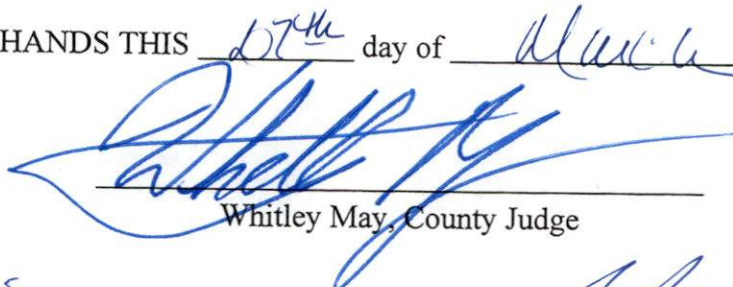 HANDS THIS 27th day of March
Whitley May, County Judge